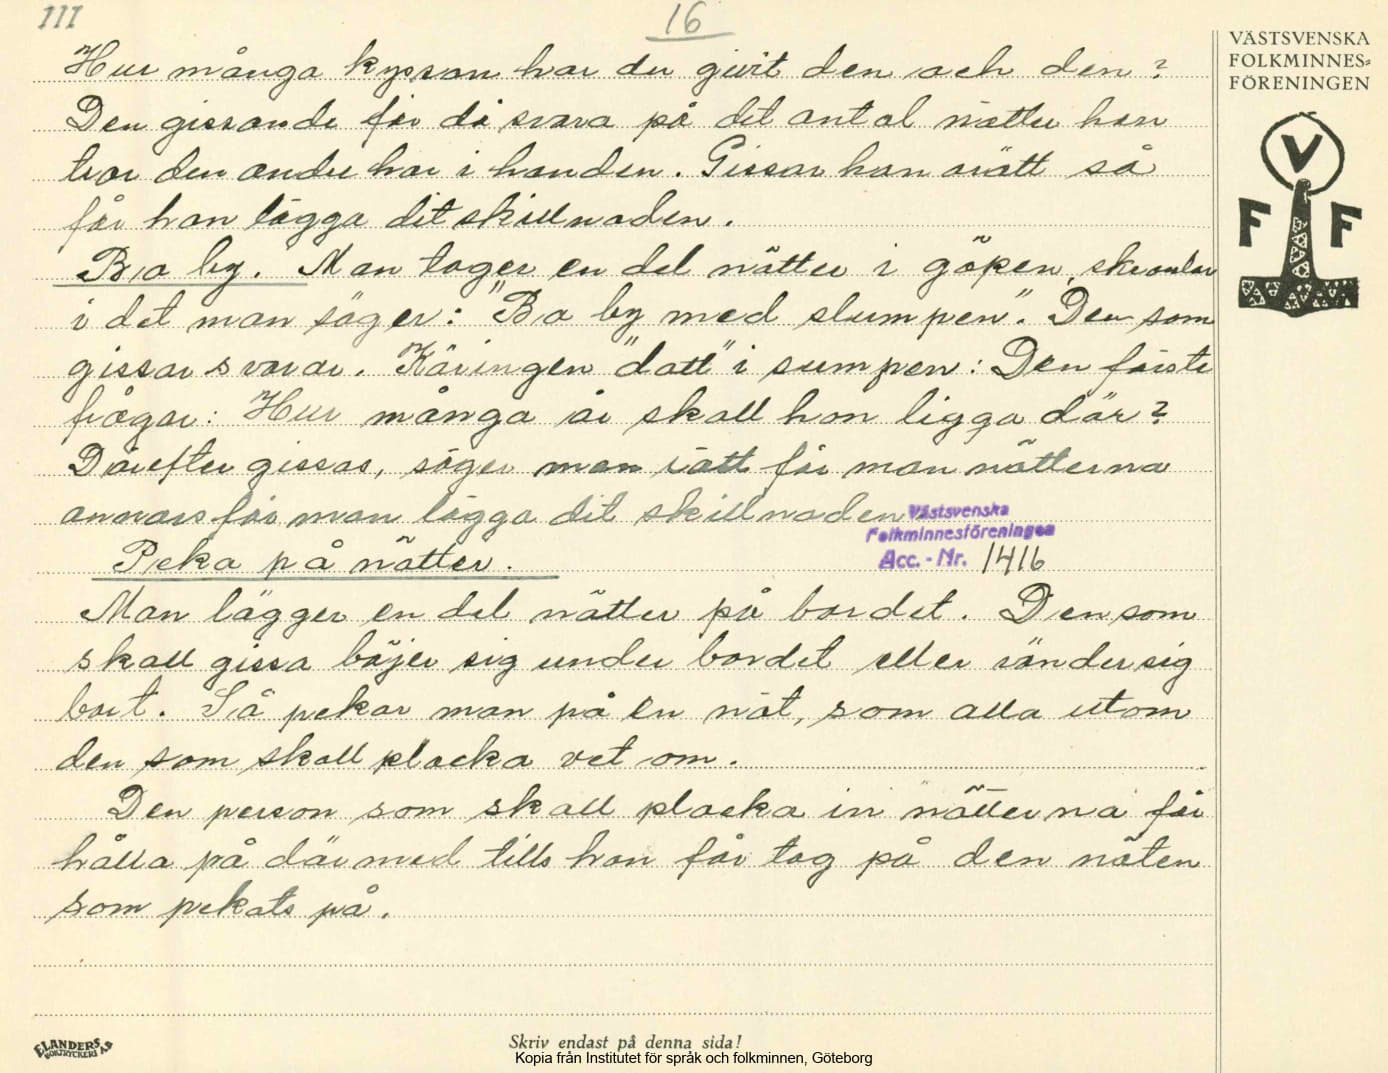 III
16
VÄSTSVENSKA
FOLKMINNES-
FÖRENINGEN
V
F F
Hur många kyssan har du givit den och den?
Den gissande får då svara på det antal nätter han
tror den andre har i handen. Gissar han orätt så
får han lägga dit skillnaden.
Bo by. Man tager en del nätter i göpen, skramlar
i det man säger: "Bo by med slumpen". Den som
gissar svarar. Käringen "datt" i sumpen: Den förste
frågar: Hur många år skall hon ligga där?
Därefter gissas, säger man rätt får man nätterna
annars får man lägga dit skillnaden
Västsvenska
Folkminnesföreningen
Acc. - Nr. 1416
Peka på nätter.
Man lägger en del nätter på bordet. Den som
skall gissa böjer sig under bordet eller vänder sig
bort. Så pekar man på en nöt, som alla utom
den som skall plocka vet om.
Den person som skall plocka in nätterna får
hålla på därmed tills han får tag på den nöten
som pekats på.
ELANDERS
BOKTRYCKERI AB
Skriv endast på denna sida!
Kopia från Institutet för språk och folkminnen, Göteborg